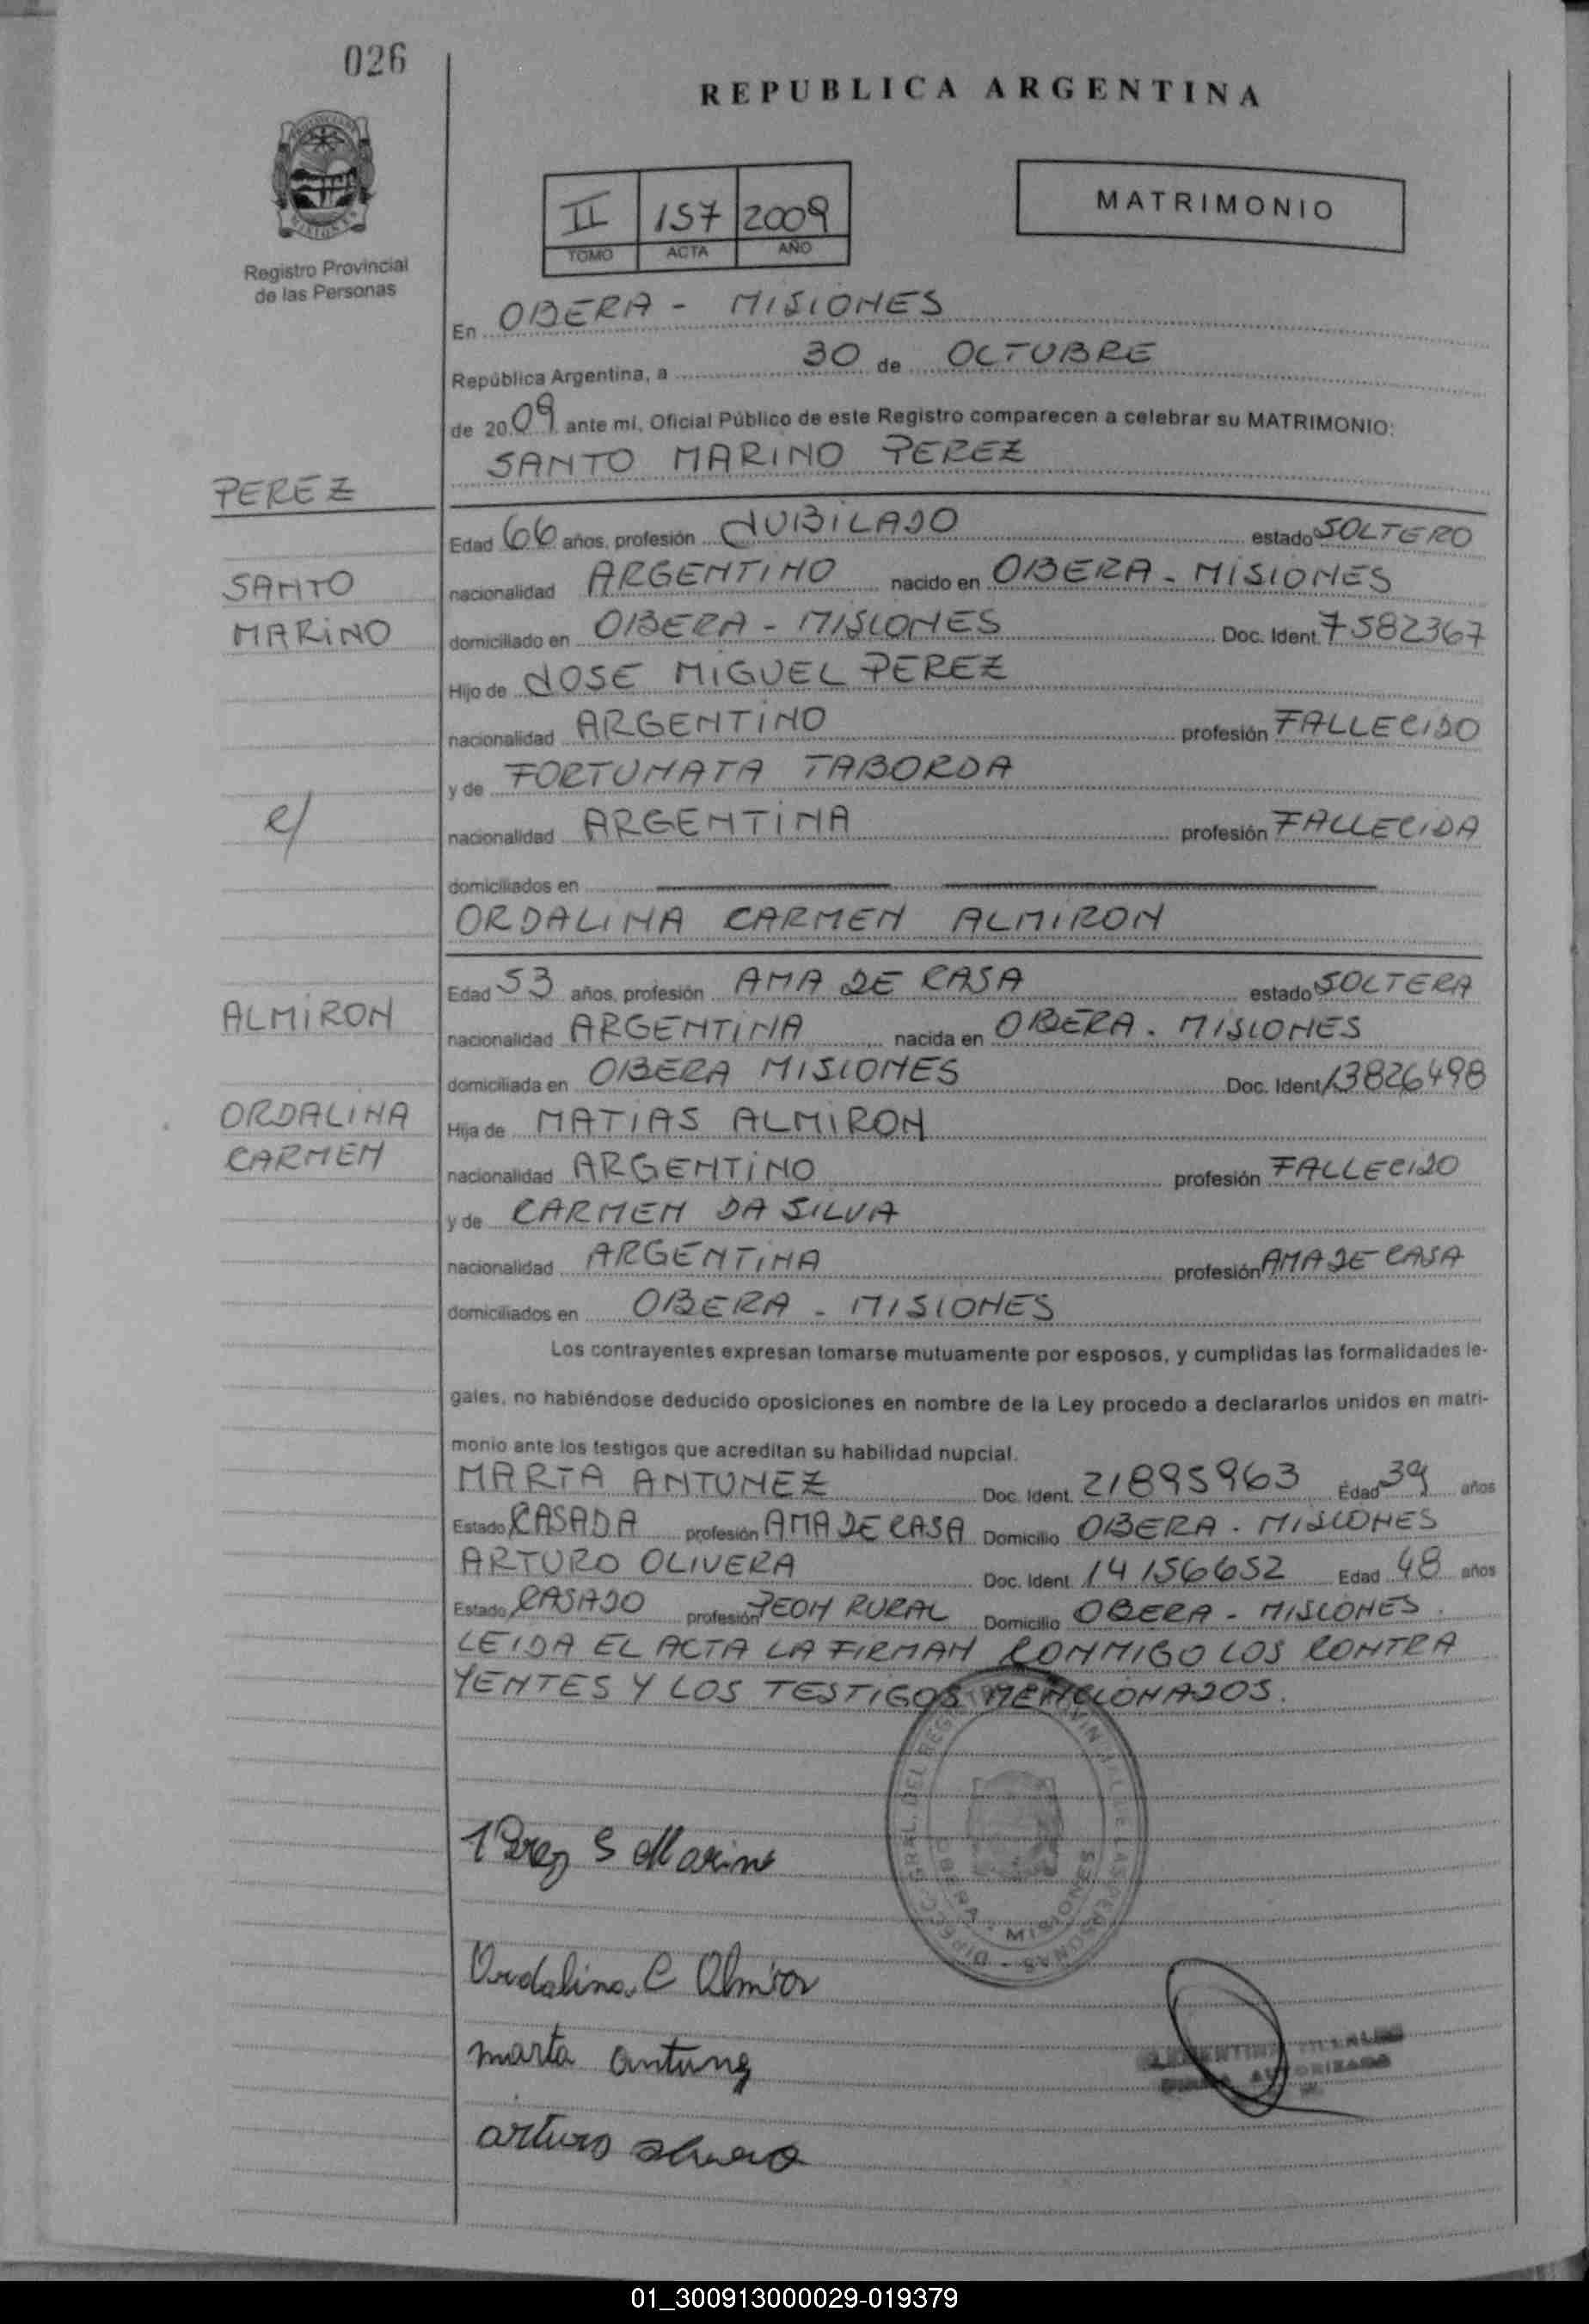 026
REPUBLICA ARGENTINA
II 157 2009
TOMO ACTA AÑO
MATRIMONIO
Registro Provincial
de las Personas
En OBERA - MISIONES
República Argentina, a 30 de OCTUBRE
de 2009 ante mí, Oficial Público de este Registro comparecen a celebrar su MATRIMONIO:
SANTO MARINO PEREZ
PEREZ
Edad 66 años, profesión JUBILADO estado SOLTERO
SANTO
nacionalidad ARGENTINO nacido en OBERA - MISIONES
MARINO
domiciliado en OBERA - MISIONES Doc. Ident. 7582367
Hijo de JOSE MIGUEL PEREZ
nacionalidad ARGENTINO profesión FALLECIDO
y de FORTUNATA TABORDA
e/
nacionalidad ARGENTINA profesión FALLECIDA
domiciliados en
ORDALINA CARMEN ALMIRON
Edad 53 años, profesión AMA DE CASA estado SOLTERA
ALMIRON
nacionalidad ARGENTINA nacida en OBERA - MISIONES
domiciliada en OBERA MISIONES Doc. Ident 13826498
ORDALINA
Hija de MATIAS ALMIRON
CARMEN
nacionalidad ARGENTINO profesión FALLECIDO
y de CARMEN DA SILVA
nacionalidad ARGENTINA profesión AMA DE CASA
domiciliados en OBERA - MISIONES
Los contrayentes expresan tomarse mutuamente por esposos, y cumplidas las formalidades le-
gales, no habiéndose deducido oposiciones en nombre de la Ley procedo a declararlos unidos en matri-
monio ante los testigos que acreditan su habilidad nupcial.
MARTA ANTUNEZ Doc. Ident. 21895963 Edad 39 años
Estado CASADA profesión AMA DE CASA Domicilio OBERA - MISIONES
ARTURO OLIVERA Doc. Ident. 14156652 Edad 48 años
Estado CASADO profesión PEON RURAL Domicilio OBERA - MISIONES.
LEIDA EL ACTA LA FIRMAN CONMIGO LOS CONTRA
YENTES Y LOS TESTIGOS MENCIONADOS.
DIREC. GRAL. DEL REGISTRO PROVINCIAL DE LAS PERSONAS
OBERA - MISIONES
Perez S Marino
Ordalina C Almiron
marta antunez
arturo
AUTORIZADA
01_300913000029-019379